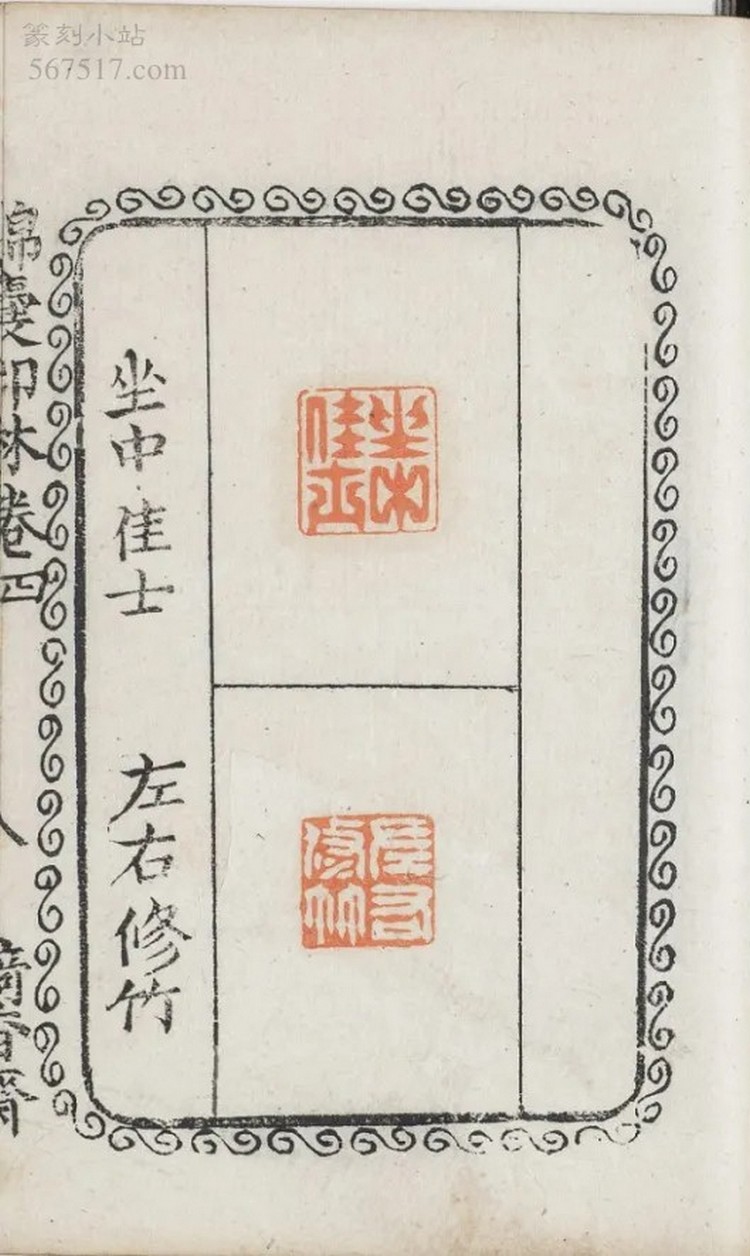 篆刻小站
567517.com
坐中
佳士
屋右
修竹
坐中佳士 左右修竹
錦囊印林卷四
八
摛香齋